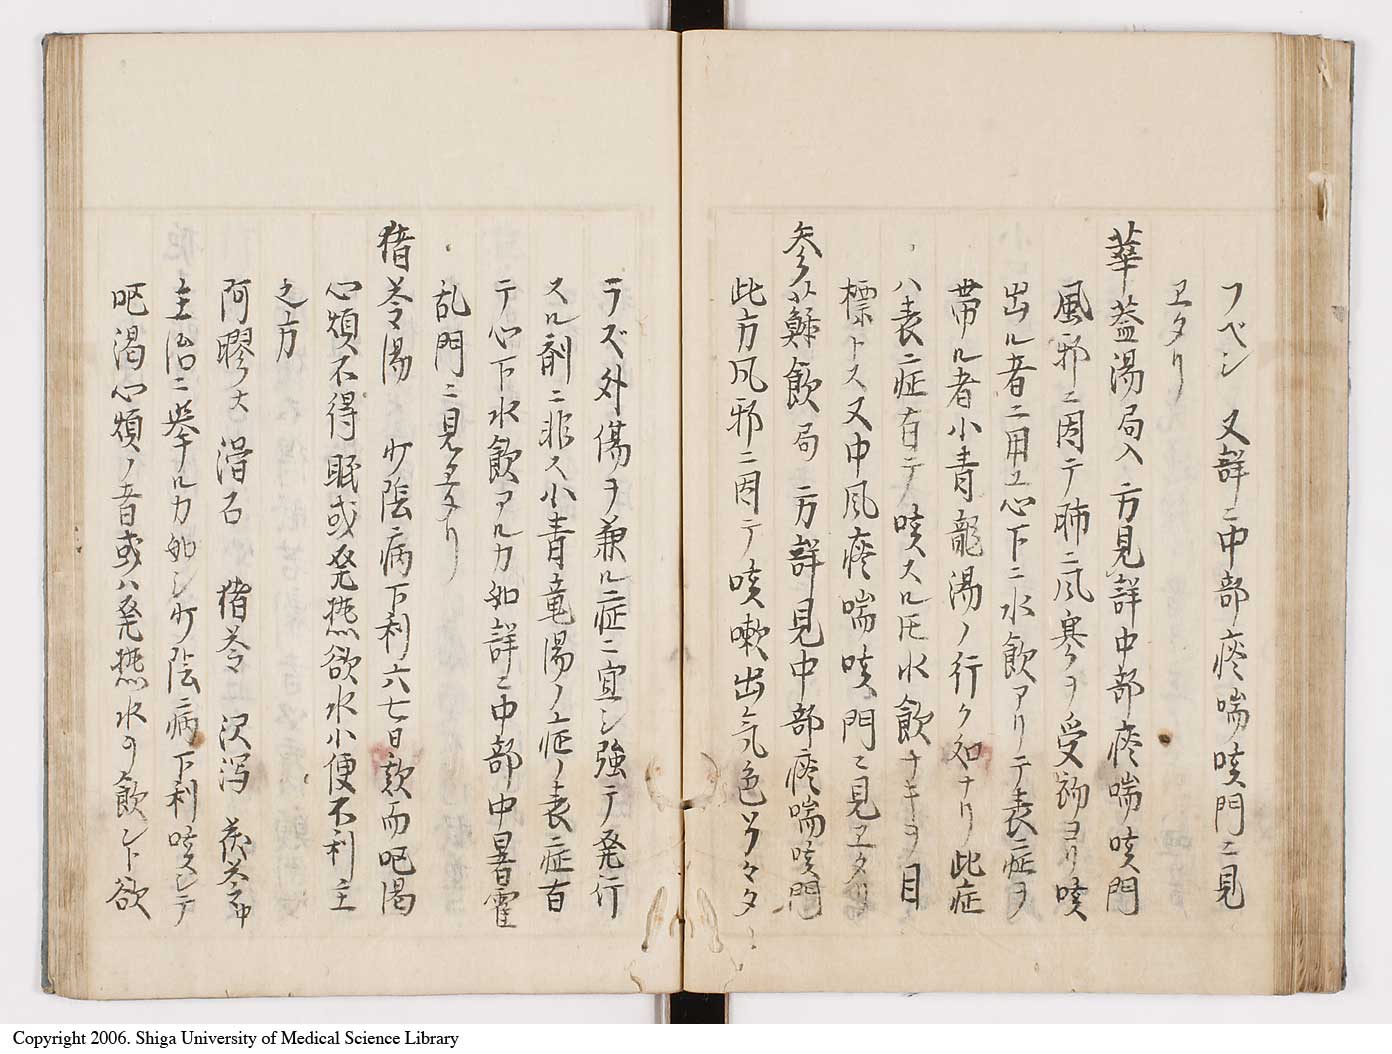 フベシ 又詳ニ中部痰喘咳門ニ見
ヱタリ
華蓋湯局入方見詳中部痰喘咳門
風邪ニ因テ肺ニ風寒ヲ受初ヨリ咳
出ル者ニ用ユ心下ニ水飲アリテ表症ヲ
帯ル者小青龍湯ノ行ク処ナリ此症
ハ表ニ症有テ咳スル𪜈水飲ナキヲ目
標トス又中風痰喘咳門ニ見ヱタリ
参蘇飲局 方詳見中部痰喘咳門
此方風邪ニ因テ咳嗽出気色
ラズ外傷ヲ兼ル症ニ宜シ強テ発行
スル剤ニ非ス小青竜湯ノ症ノ表ニ症有
テ心下水飲アルカ如詳ニ中部中暑霍
乱門ニ見ヱタリ
猪苓湯 少陰病下利六七日欬而呕渇
心煩不得眠或発熱欲水小便不利主
之方
阿膠大 滑石 猪苓 沢瀉 茯苓中
主治ニ挙ルカ如シ少陰病下利咳シテ
呕渇心煩ノ者或ハ発熱水ヲ飲ント欲
Copyright 2006. Shiga University of Medical Science Library